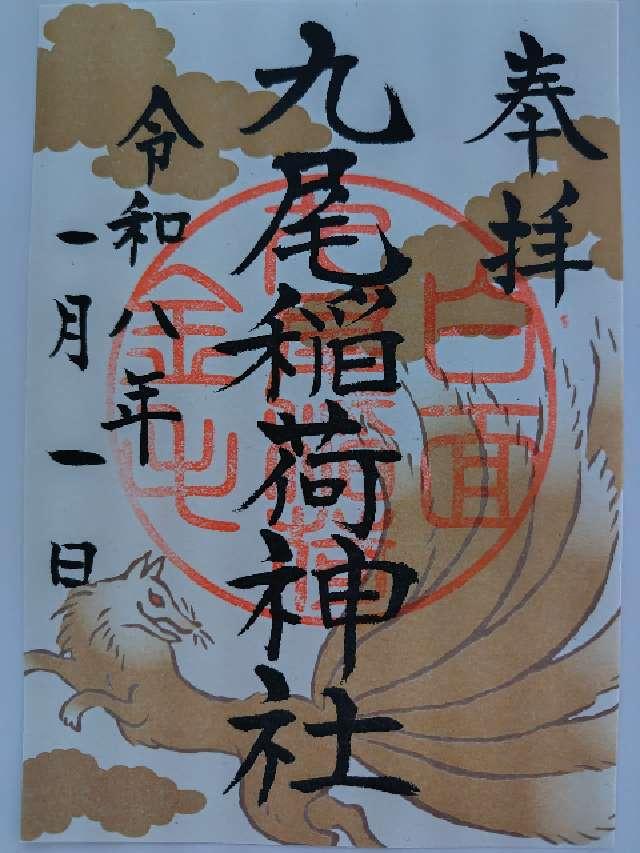 奉拝
九尾稲荷神社
令和八年
一月一日
白面
金毛